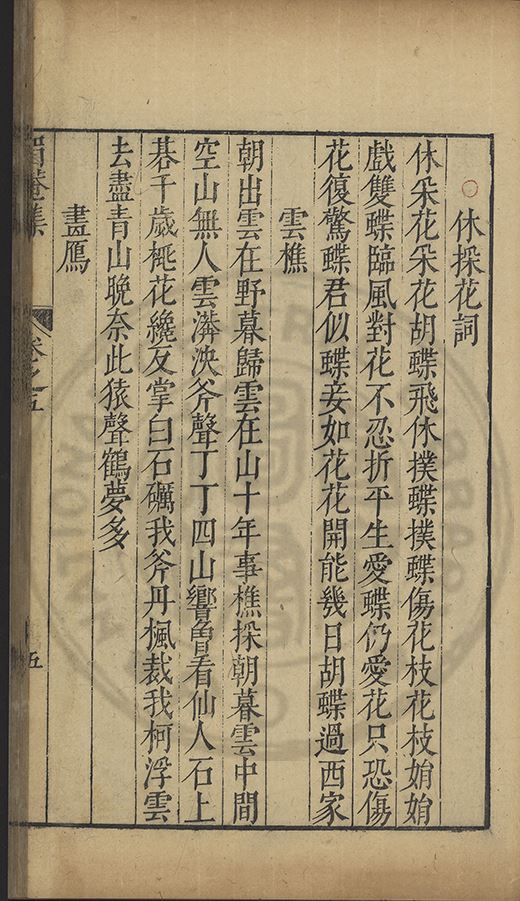 休採花詞
休采花采花胡蝶飛休撲蝶撲蝶傷花枝花枝娟娟
戲雙蝶臨風對花不忍折平生愛蝶仍愛花只恐傷
花復驚蝶君似蝶妾如花花開能幾日胡蝶過西家
雲樵
朝出雲在野暮歸雲在山十年事樵採朝暮雲中間
空山無人雲滃泱斧聲丁丁四山響曾看仙人石上
棊千歲桃花纔反掌白石礪我斧丹楓裁我柯浮雲
去盡青山晚奈此猿聲鶴夢多
畫鴈
眉菴集
卷之五
五